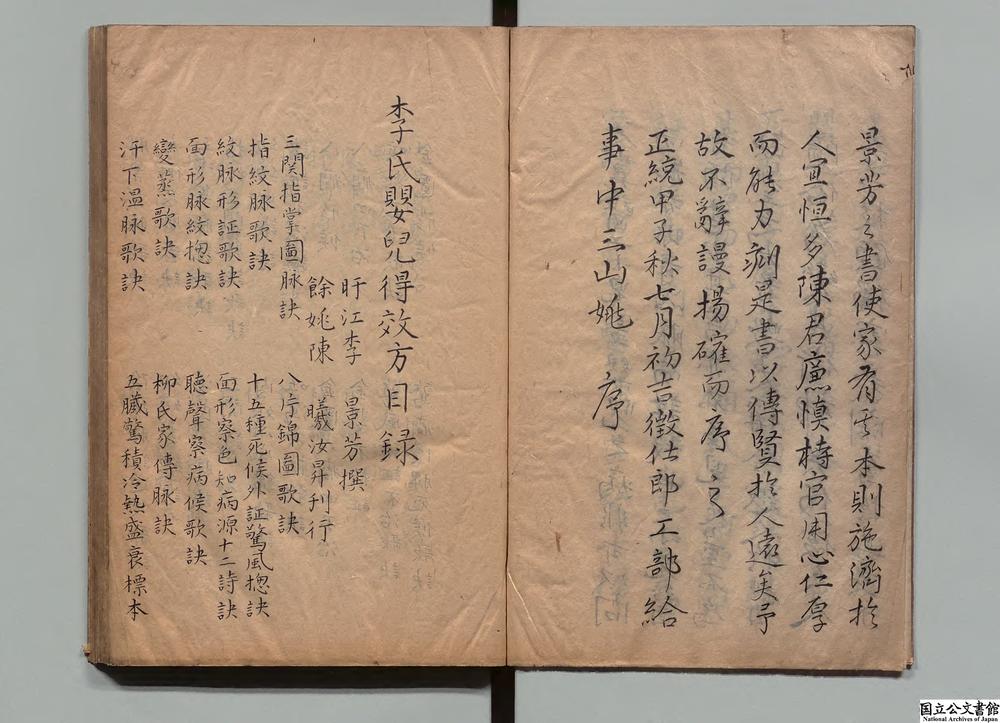 景芳之書使家有其本則施濟於
人宜恒多陳君廉慎持官用心仁厚
而能力刻是書以傳賢於人遠矣予
故不辭謾揚確而序
正統甲子秋七月初吉徵仕郎工部給
事中三山姚序
李氏嬰兒得效方目錄
盱江李景芳撰
餘姚陳曦汝昇刊行
三関指掌圖脉訣
八片錦圖歌訣
指紋脉歌訣
十五種死候外証驚風揔訣
紋脉形証歌訣
面形察色知病源十二詩訣
面形脉紋揔訣
聽聲察病候歌訣
變蒸歌訣
柳氏家傳脉訣
汗下溫脉歌訣
五臟驚積冷熱盛衰標本
国立公文書館
National Archives of Japan